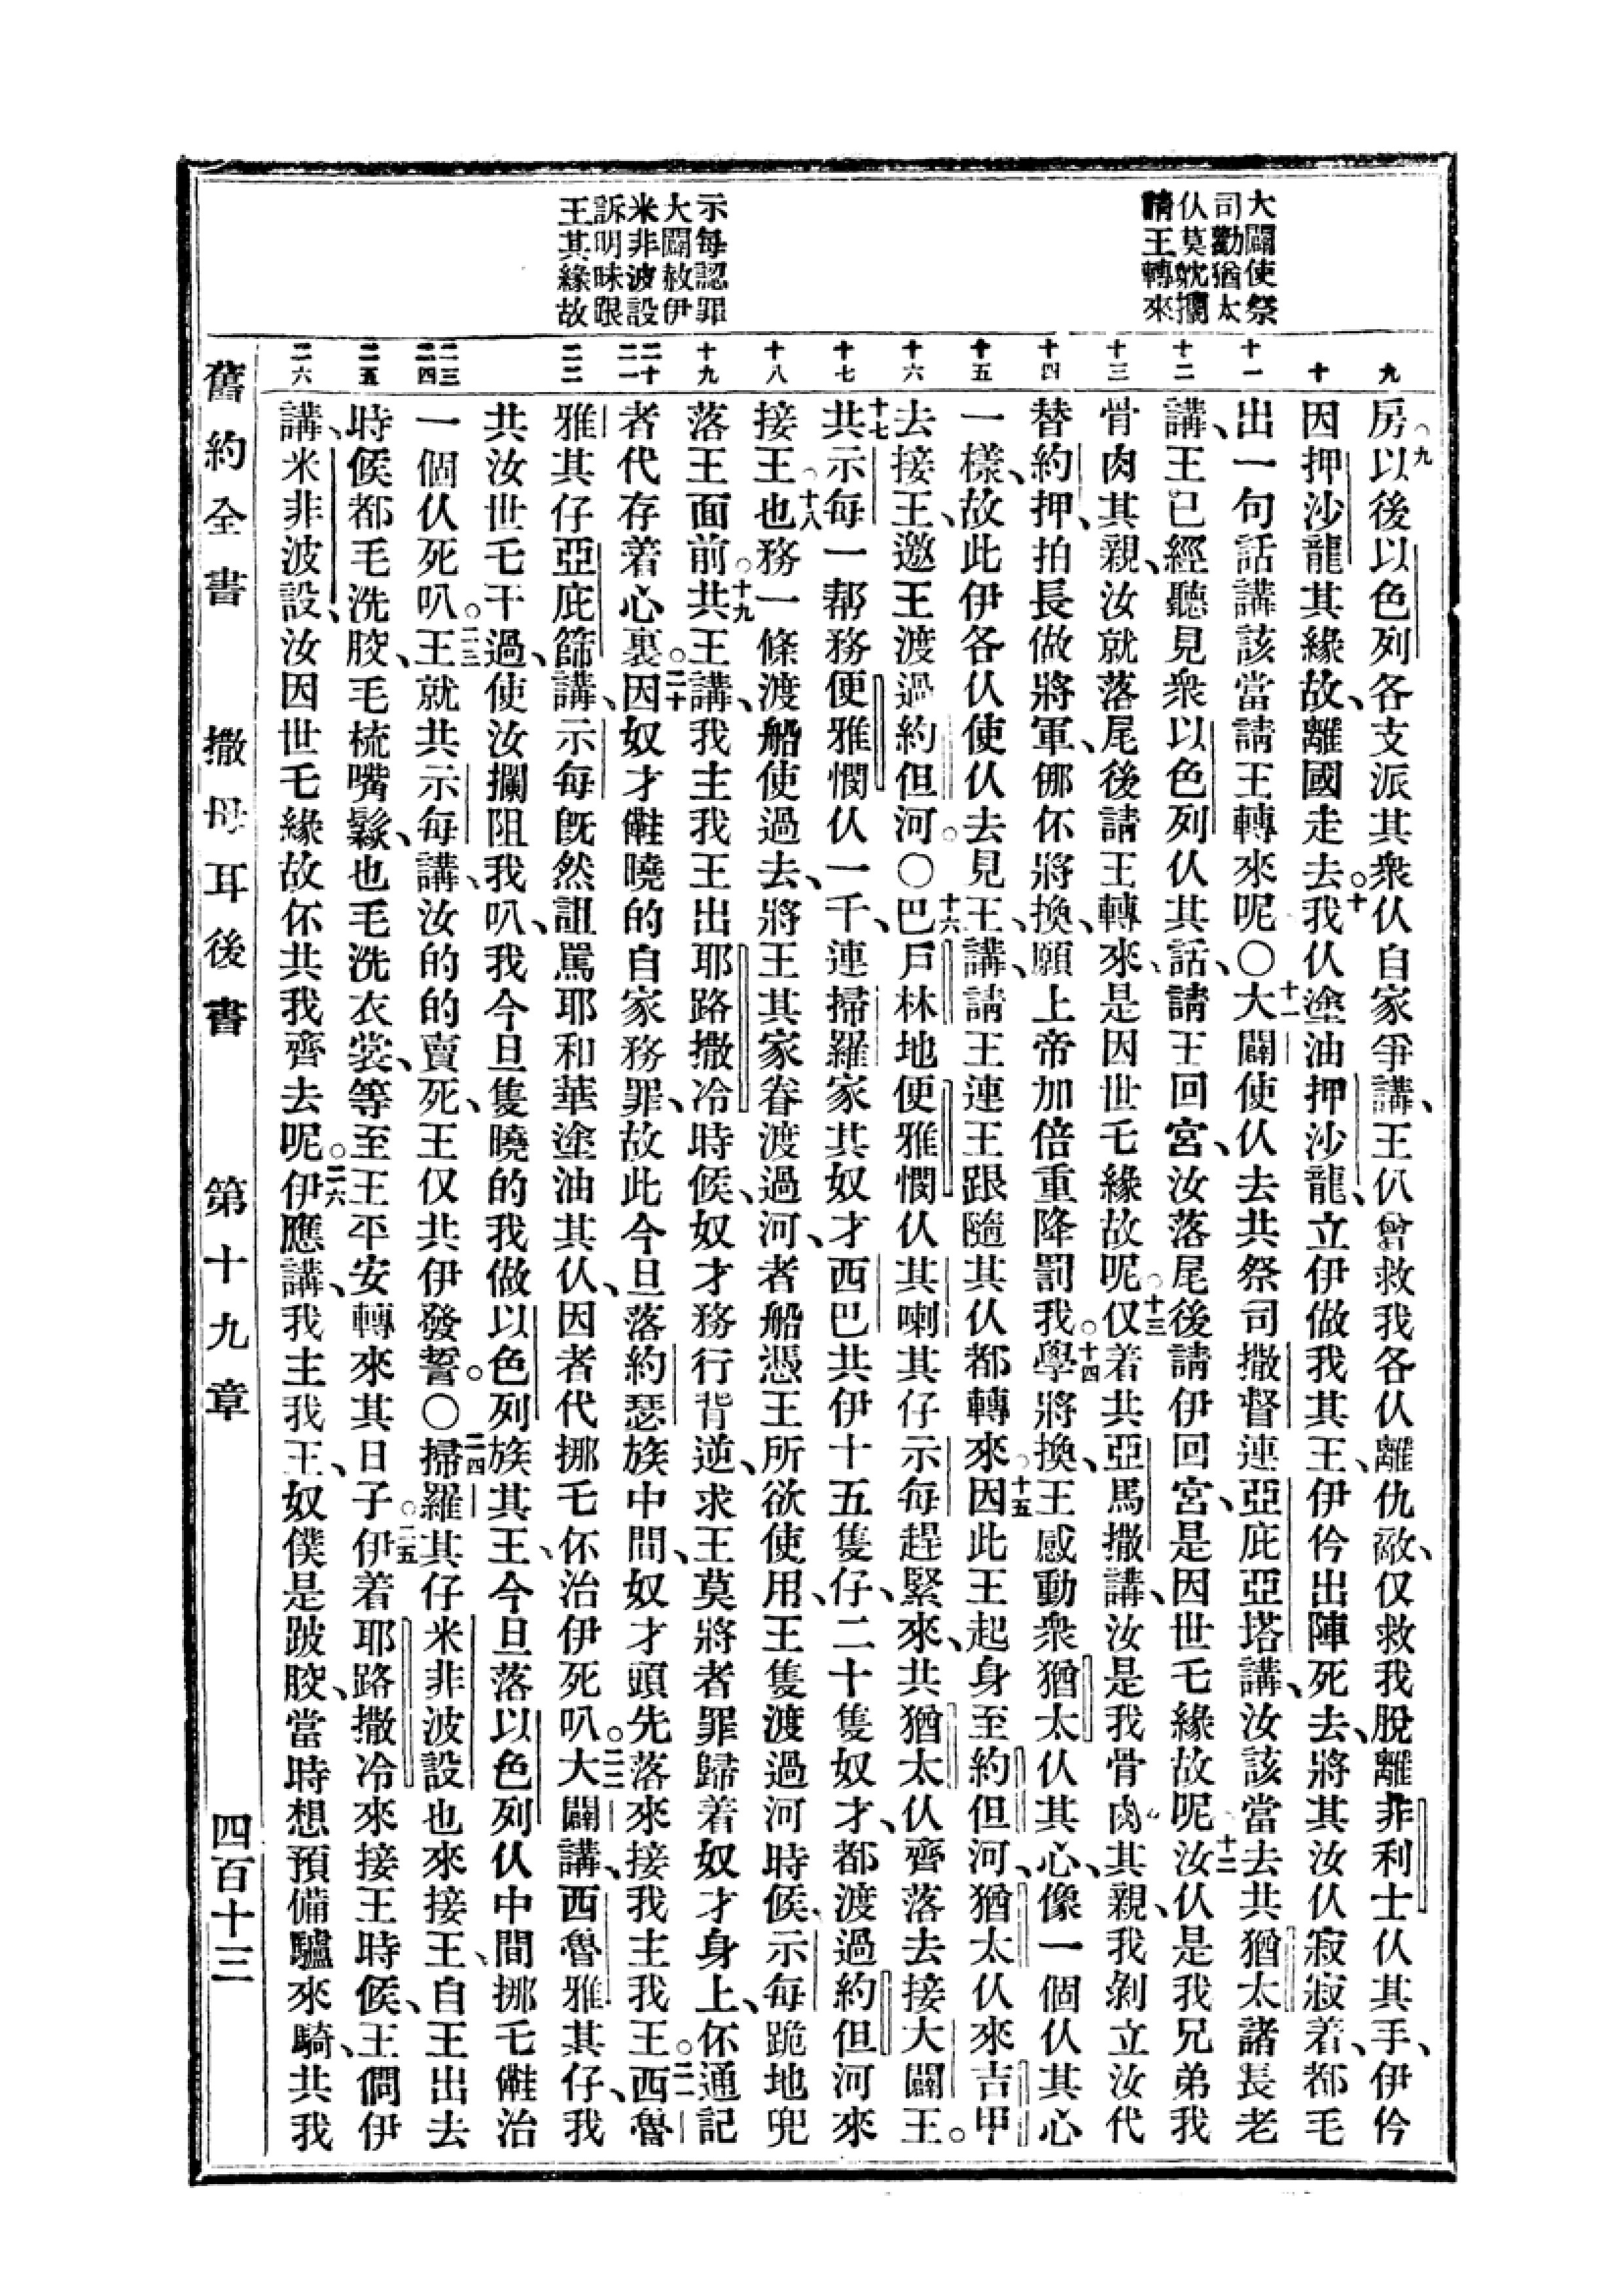 大闢使祭
司勸猶太
仫莫躭攔
請王轉來
示每認罪
大闢赦伊
米非波設
訴明昧跟
王其緣故
九
十
十一
十二
十三
十四
十五
十六
十七
十八
十九
二十
二一
二二
二三
二四
二五
二六
房○九以後以色列各支派其衆仫自家爭講、王仈曾救我各仫離仇敵、仅救我脫離非利士仫其手、伊仱
因押沙龍其緣故、離國走去。十我仫塗油押沙龍、立伊做我其王、伊仱出陣死去、將其汝仫寂寂着、都毛
出一句話講該當請王轉來呢○十一大闢使仫去共祭司撒督連亞庇亞塔講、汝該當去共猶太諸長老
講、王已經聽見衆以色列仫其話、請王回宮、汝落尾後請伊回宮、是因世乇緣故呢十二汝仫是我兄弟我
骨肉其親、汝就落尾後請王轉來、是因世乇緣故呢○十三仅着共亞馬撒講、汝是我骨肉其親、我剝立汝代
替約押、拍長做將軍、倻伓將換、願上帝加倍重降罰我○十四學將換、王感動衆猶太仫其心、像一個仫其心
一樣、故此伊各仫使仫去見王、講、請王連王跟隨其仫都轉來○十五因此王起身至約但河、猶太仫來吉甲
去接王、邀王渡過約但河○○十六巴戶林地便雅憫仫其喇其仔示每趕緊來、共猶太仫齊落去接大闢王。
十七共示每一帮務便雅憫仫一千、連掃羅家其奴才西巴共伊十五隻仔、二十隻奴才、都渡過約但河來
接王也○十八務一條渡船使過去、將王其家眷渡過河、者船憑王所欲使用、王隻渡過河時候、示每跪地兜
落王面前○十九共王講、我主我王出耶路撒冷時候、奴才務行背逆、求王莫將者罪歸着奴才身上、伓通記
者代存着心裏○二十因奴才䧴曉的自家務罪、故此今旦落約瑟族中間、奴才頭先落來接我主我王○二一西魯
雅其仔亞庇篩講、示每旣然詛駡耶和華塗油其仫、因者代挪乇伓治伊死叭○二二大闢講、西魯雅其仔、我
共汝世乇干過、使汝攔阻我叭、我今旦隻曉的我做以色列族其王、今旦落以色列仫中間挪乇䧴治
一個仫死叭○二三王就共示每講、汝的的賣死、王仅共伊發誓。○二四掃羅其仔米非波設也來接王、自王出去
時候都毛洗骹、毛梳嘴鬚、也毛洗衣裳、等至王平安轉來其日子○二五伊着耶路撒冷來接王時候、王僴伊
講、米非波設、汝因世乇緣故伓共我齊去呢○二六伊應講、我主我王、奴僕是跛骹、當時想預備驢來騎、共我
舊約全書　撒母耳後書　第十九章　四百十三